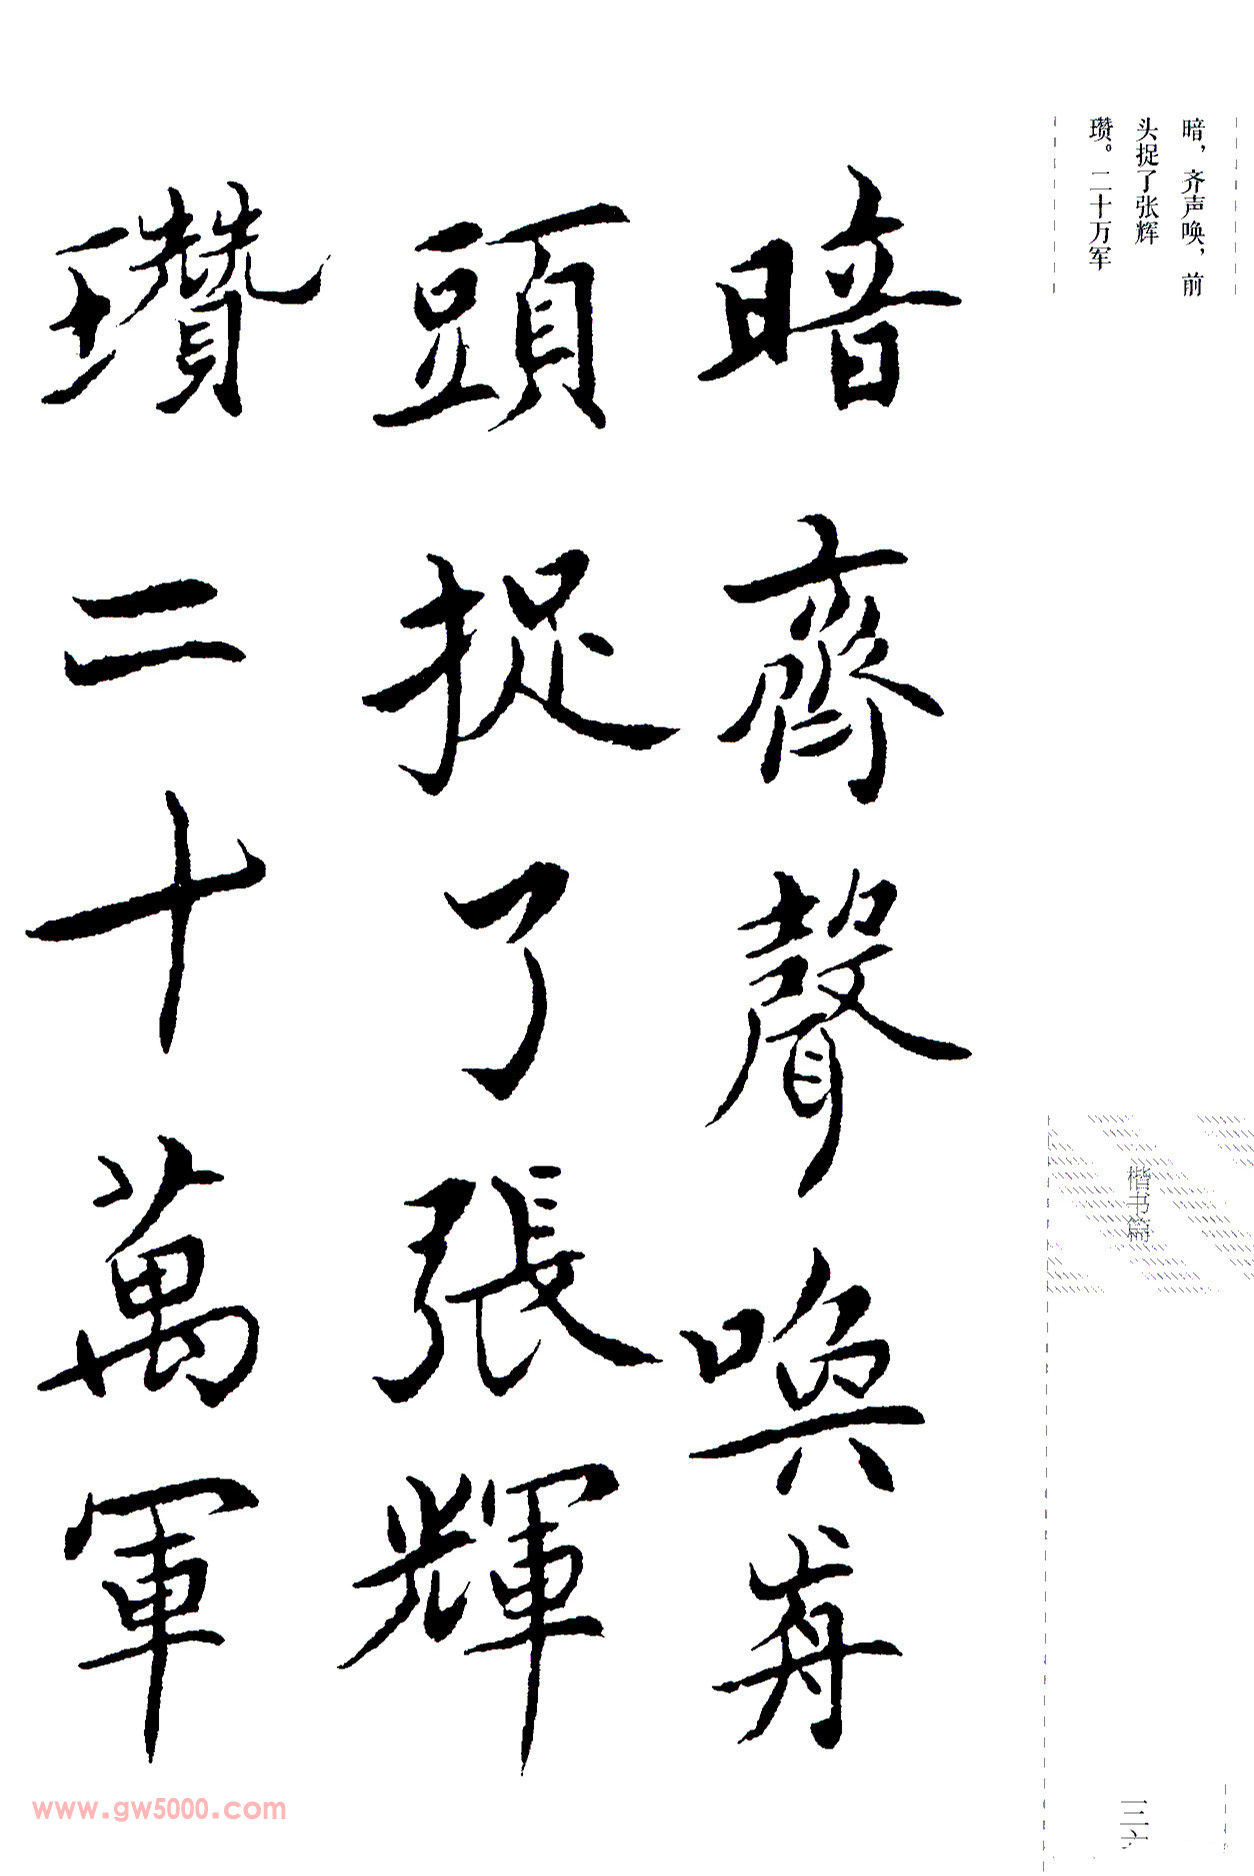 暗，齐声唤，前
头捉了张辉
瓒。二十万军
暗齊聲喚前
頭捉了張輝
瓚二十萬軍
楷书篇
www.gw5000.com